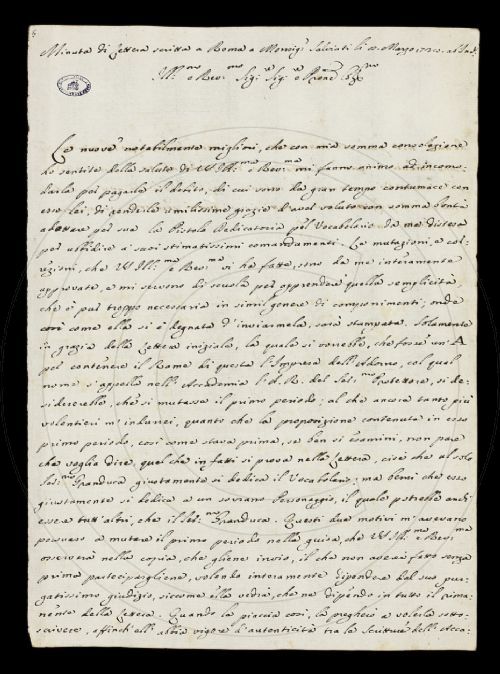 6
Minuta di Lettera scritta a Roma a Monsig.r Salviati li Marzo 172
Ill.mo e Rev.mo Sig.e Sig.e e Pron.e
Le nuove notabilmente migliori, che con mia somma consolazione
ho sentite della salute di VS Ill:ma e Rev:ma mi fanno animo ad incomo-
darla poi pagarle il debito, di cui sono da gran tempo contumace con
esso lei, di renderle umilissime grazie d'aver voluto con somma bontà
adottare per sua la Pistola Dedicatoria pel Vocabolario da me distesa
per ubbidire a' suoi stimatissimi comandamenti. Le mutazioni, e cor-
rezioni, che VS Ill:ma e Rev:ma vi ha fatte, sono da me interamente
approvate, e mi servono di scuola per apprendere quella semplicità,
che è pur troppo necessaria in simil genere di componimenti; onde
così come ella si è degnata d'inviarmela, sarà stampata. Solamente
in grazia della Lettera iniziale, la quale si vorrebbe, che fosse un'A
per contenere il Rame di questa l'Impresa dell'Adorno, col qual
nome si appella nell'Accademia l'A. R. del Ser:mo Protettore, si de-
sidererebbe, che si mutasse il primo periodo: al che ancora tanto più
volentieri m'indurrei, quanto che la proposizione contenuta in esso
primo periodo, così come stava prima, se ben si esamini, non pare
che voglia dire, quel che in fatti si prova nella Lettera, cioè che al solo
Ser:mo Granduca giustamente si dedica il Vocabolario; ma bensì che esso
giustamente si dedica a un sovrano Personaggio, il quale potrebbe anch'
essere tutt'altri, che il Ser:mo Granduca. Questi due motivi m'avevano
persuaso a mutare il primo periodo nella guisa, che VS Ill:ma e Rev:ma
osserverà nella copia, che gliene invio, il che non avrei fatto senza
prima parteciparglielo, volendo interamente dipendere dal suo pur-
gatissimo giudizio, siccome ella vedrà, che ne dipendo in tutto il rima-
nente della Lettera. Quando le piaccia così, la pregherò a volerla sotto-
scrivere, affinch'ell'abbia vigore d'autenticità tra le Scritture dell'Acca-